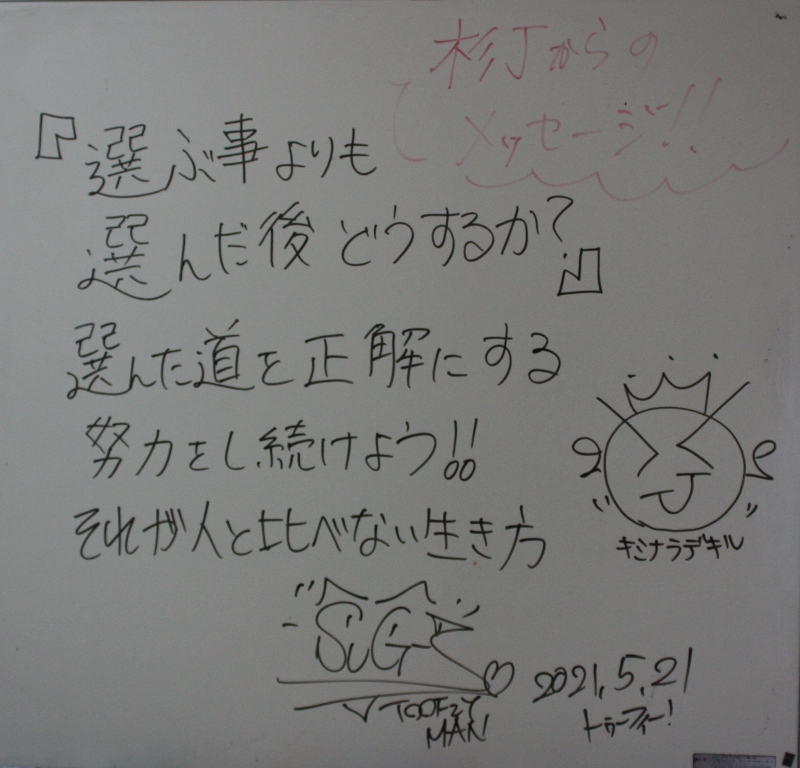 杉Jからの
メッセージ!!
『選ぶ事よりも
選んだ後どうするか?』
選んだ道を正解にする
努力をし続けよう!!
それが人と比べない生き方
キミナラデキル
SUG
2021.5.21
トゥーフィー!
MAN